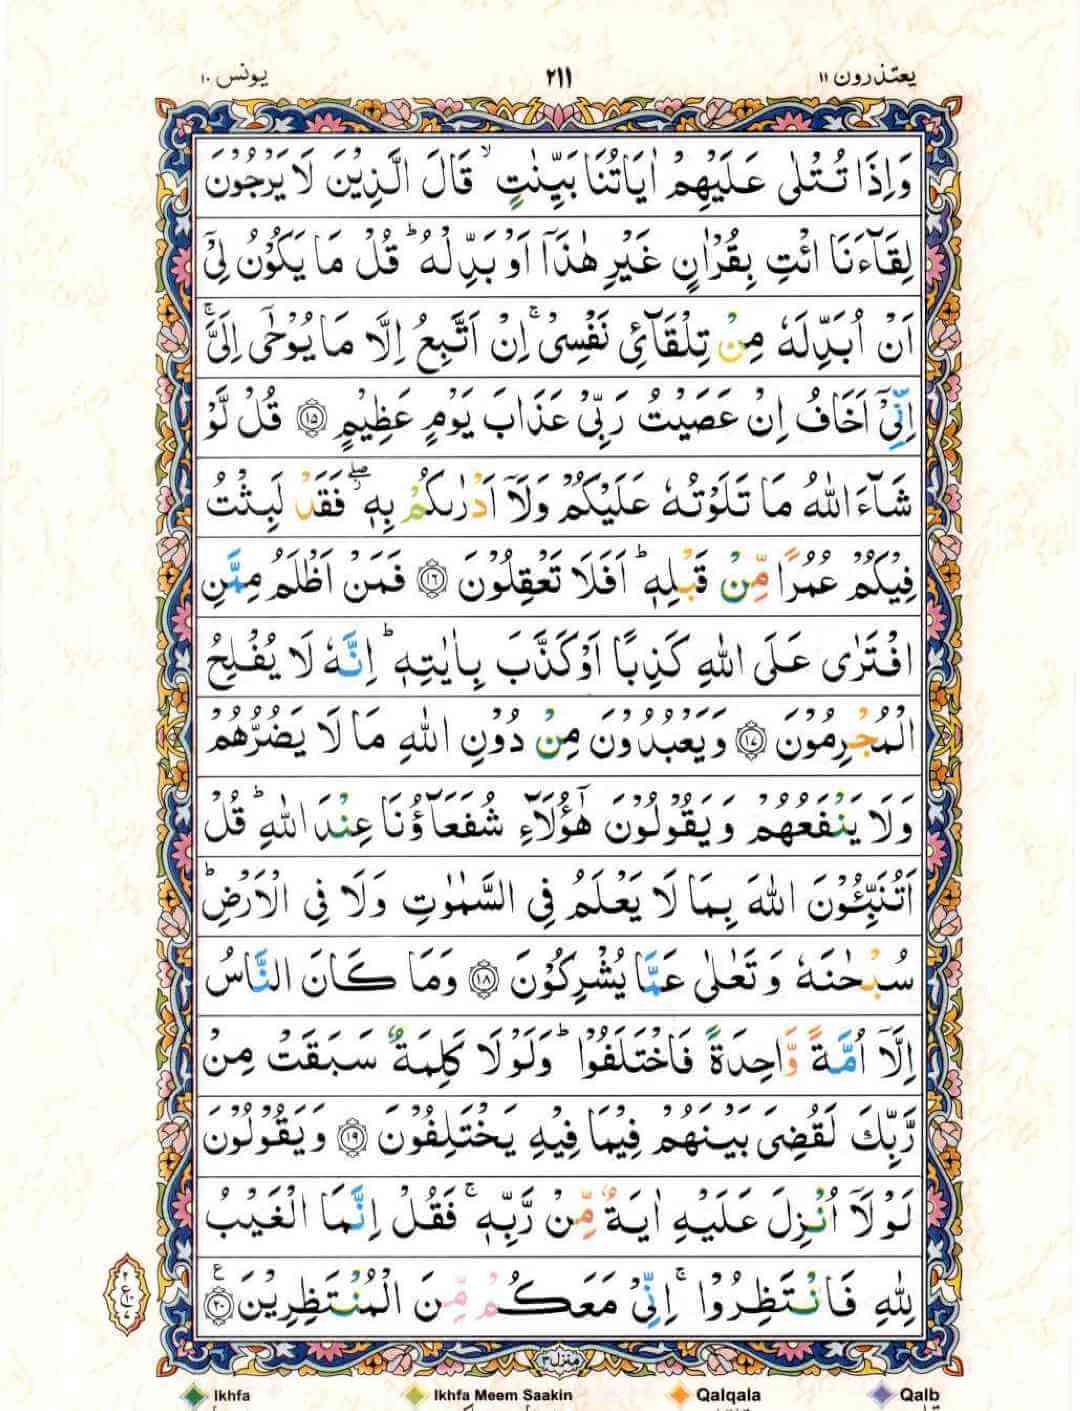 یعتذرون ۱۱
۲۱۱
یونس ۱۰
وَاِذَا تُتْلٰی عَلَیْهِمْ اٰیَاتُنَا بَیِّنٰتٍ ۙ قَالَ الَّذِیْنَ لَا یَرْجُوْنَ
لِقَآءَنَا ائْتِ بِقُرْاٰنٍ غَیْرِ هٰذَاۤ اَوْ بَدِّلْهُ ؕ قُلْ مَا یَكُوْنُ لِیْۤ
اَنْ اُبَدِّلَهٗ مِنْ تِلْقَآئِ نَفْسِیْ ۚ اِنْ اَتَّبِعُ اِلَّا مَا یُوْحٰۤی اِلَیَّ ۚ
اِنِّیْۤ اَخَافُ اِنْ عَصَیْتُ رَبِّیْ عَذَابَ یَوْمٍ عَظِیْمٍ ﴿۱۵﴾ قُلْ لَّوْ
شَآءَ اللّٰهُ مَا تَلَوْتُهٗ عَلَیْكُمْ وَلَاۤ اَدْرٰىكُمْ بِهٖ ۖؗ فَقَدْ لَبِثْتُ
فِیْكُمْ عُمُرًا مِّنْ قَبْلِهٖ ؕ اَفَلَا تَعْقِلُوْنَ ﴿۱۶﴾ فَمَنْ اَظْلَمُ مِمَّنِ
افْتَرٰی عَلَی اللّٰهِ كَذِبًا اَوْ كَذَّبَ بِاٰیٰتِهٖ ؕ اِنَّهٗ لَا یُفْلِحُ
الْمُجْرِمُوْنَ ﴿۱۷﴾ وَیَعْبُدُوْنَ مِنْ دُوْنِ اللّٰهِ مَا لَا یَضُرُّهُمْ
وَلَا یَنْفَعُهُمْ وَیَقُوْلُوْنَ هٰۤؤُلَآءِ شُفَعَآؤُنَا عِنْدَ اللّٰهِ ؕ قُلْ
اَتُنَبِّـُٔوْنَ اللّٰهَ بِمَا لَا یَعْلَمُ فِی السَّمٰوٰتِ وَلَا فِی الْاَرْضِ ؕ
سُبْحٰنَهٗ وَتَعٰلٰی عَمَّا یُشْرِكُوْنَ ﴿۱۸﴾ وَمَا كَانَ النَّاسُ
اِلَّاۤ اُمَّةً وَّاحِدَةً فَاخْتَلَفُوْا ؕ وَلَوْلَا كَلِمَةٌ سَبَقَتْ مِنْ
رَّبِّكَ لَقُضِیَ بَیْنَهُمْ فِیْمَا فِیْهِ یَخْتَلِفُوْنَ ﴿۱۹﴾ وَیَقُوْلُوْنَ
لَوْلَاۤ اُنْزِلَ عَلَیْهِ اٰیَةٌ مِّنْ رَّبِّهٖ ۚ فَقُلْ اِنَّمَا الْغَیْبُ
لِلّٰهِ فَانْتَظِرُوْا ۚ اِنِّیْ مَعَكُمْ مِّنَ الْمُنْتَظِرِیْنَ ﴿۲۰﴾ ع
منزل ۳
Ikhfa
Ikhfa Meem Saakin
Qalqala
Qalb